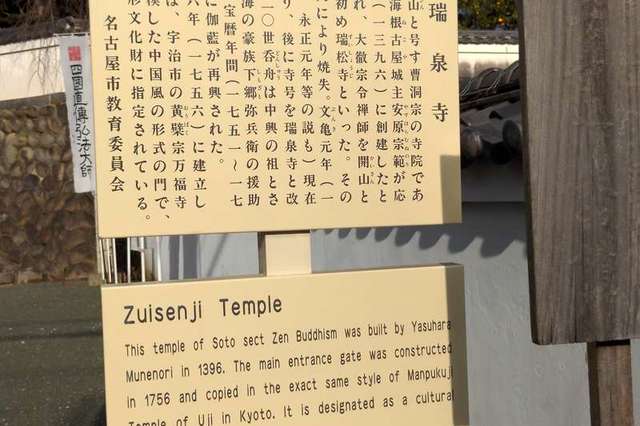 瑞泉寺
山と号す曹洞宗の寺院であ
海根古屋城主安原宗範が応
(一三九六)に創建したと
れ、大徹宗令禅師を開山と
初め瑞松寺といった。その
により焼失。文亀元年(一
、永正元年等の説も)現在
り、後に寺号を瑞泉寺と改
一〇世呑舟は中興の祖とさ
海の豪族下郷弥兵衛の援助
宝暦年間(一七五一〜一七
に伽藍が再興された。
六年(一七五六)に建立し
は、宇治市の黄檗宗万福寺
模した中国風の形式の門で、
形文化財に指定されている。
名古屋市教育委員会
四國直傳弘法大師
Zuisenji Temple
This temple of Soto sect Zen Buddhism was built by Yasuhara
Munenori in 1396. The main entrance gate was constructed
in 1756 and copied in the exact same style of Manpukuji
Temple of Uji in Kyoto. It is designated as a cultural